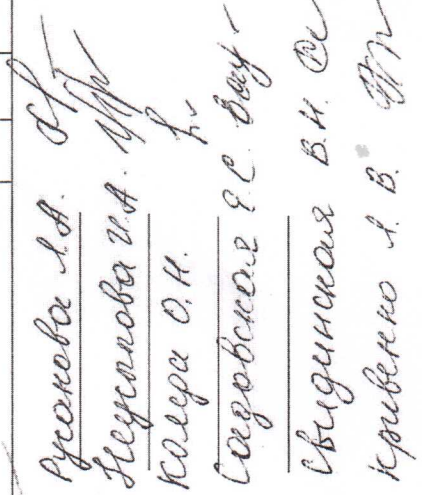 Русакова Л.А.
Неусыпова И.А.
Коляда О.Н.
Садовская Е.С.
Свидинская В.Н.
Кривенко Л.В.